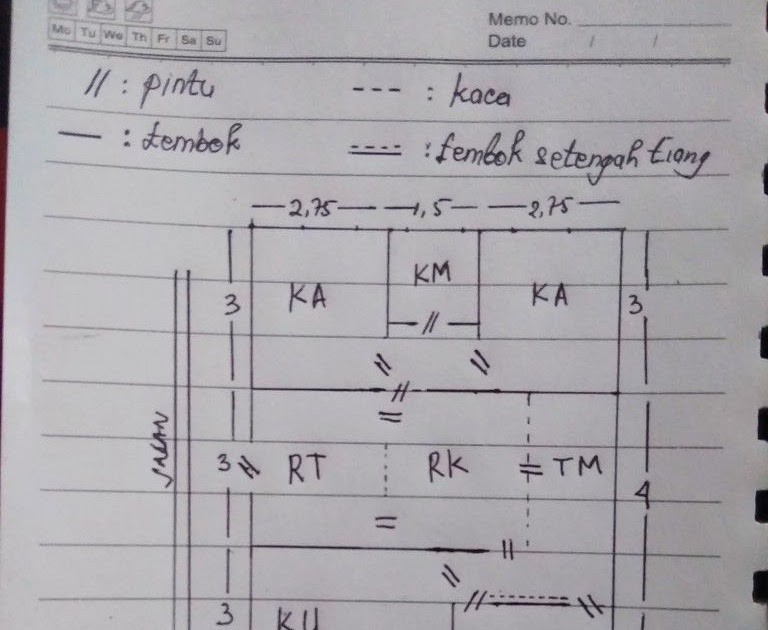 Memo No.
Mo Tu We Th Fr Sa Su
Date / /
// : pintu --- : kaca
— : tembok ==== : tembok setengah tiang
2,75 1,5 2,75
KA KM KA
3 3
//
// //
//
=
JALAN
3 // RT RK = TM
4
=
//
//
// //
3 KU